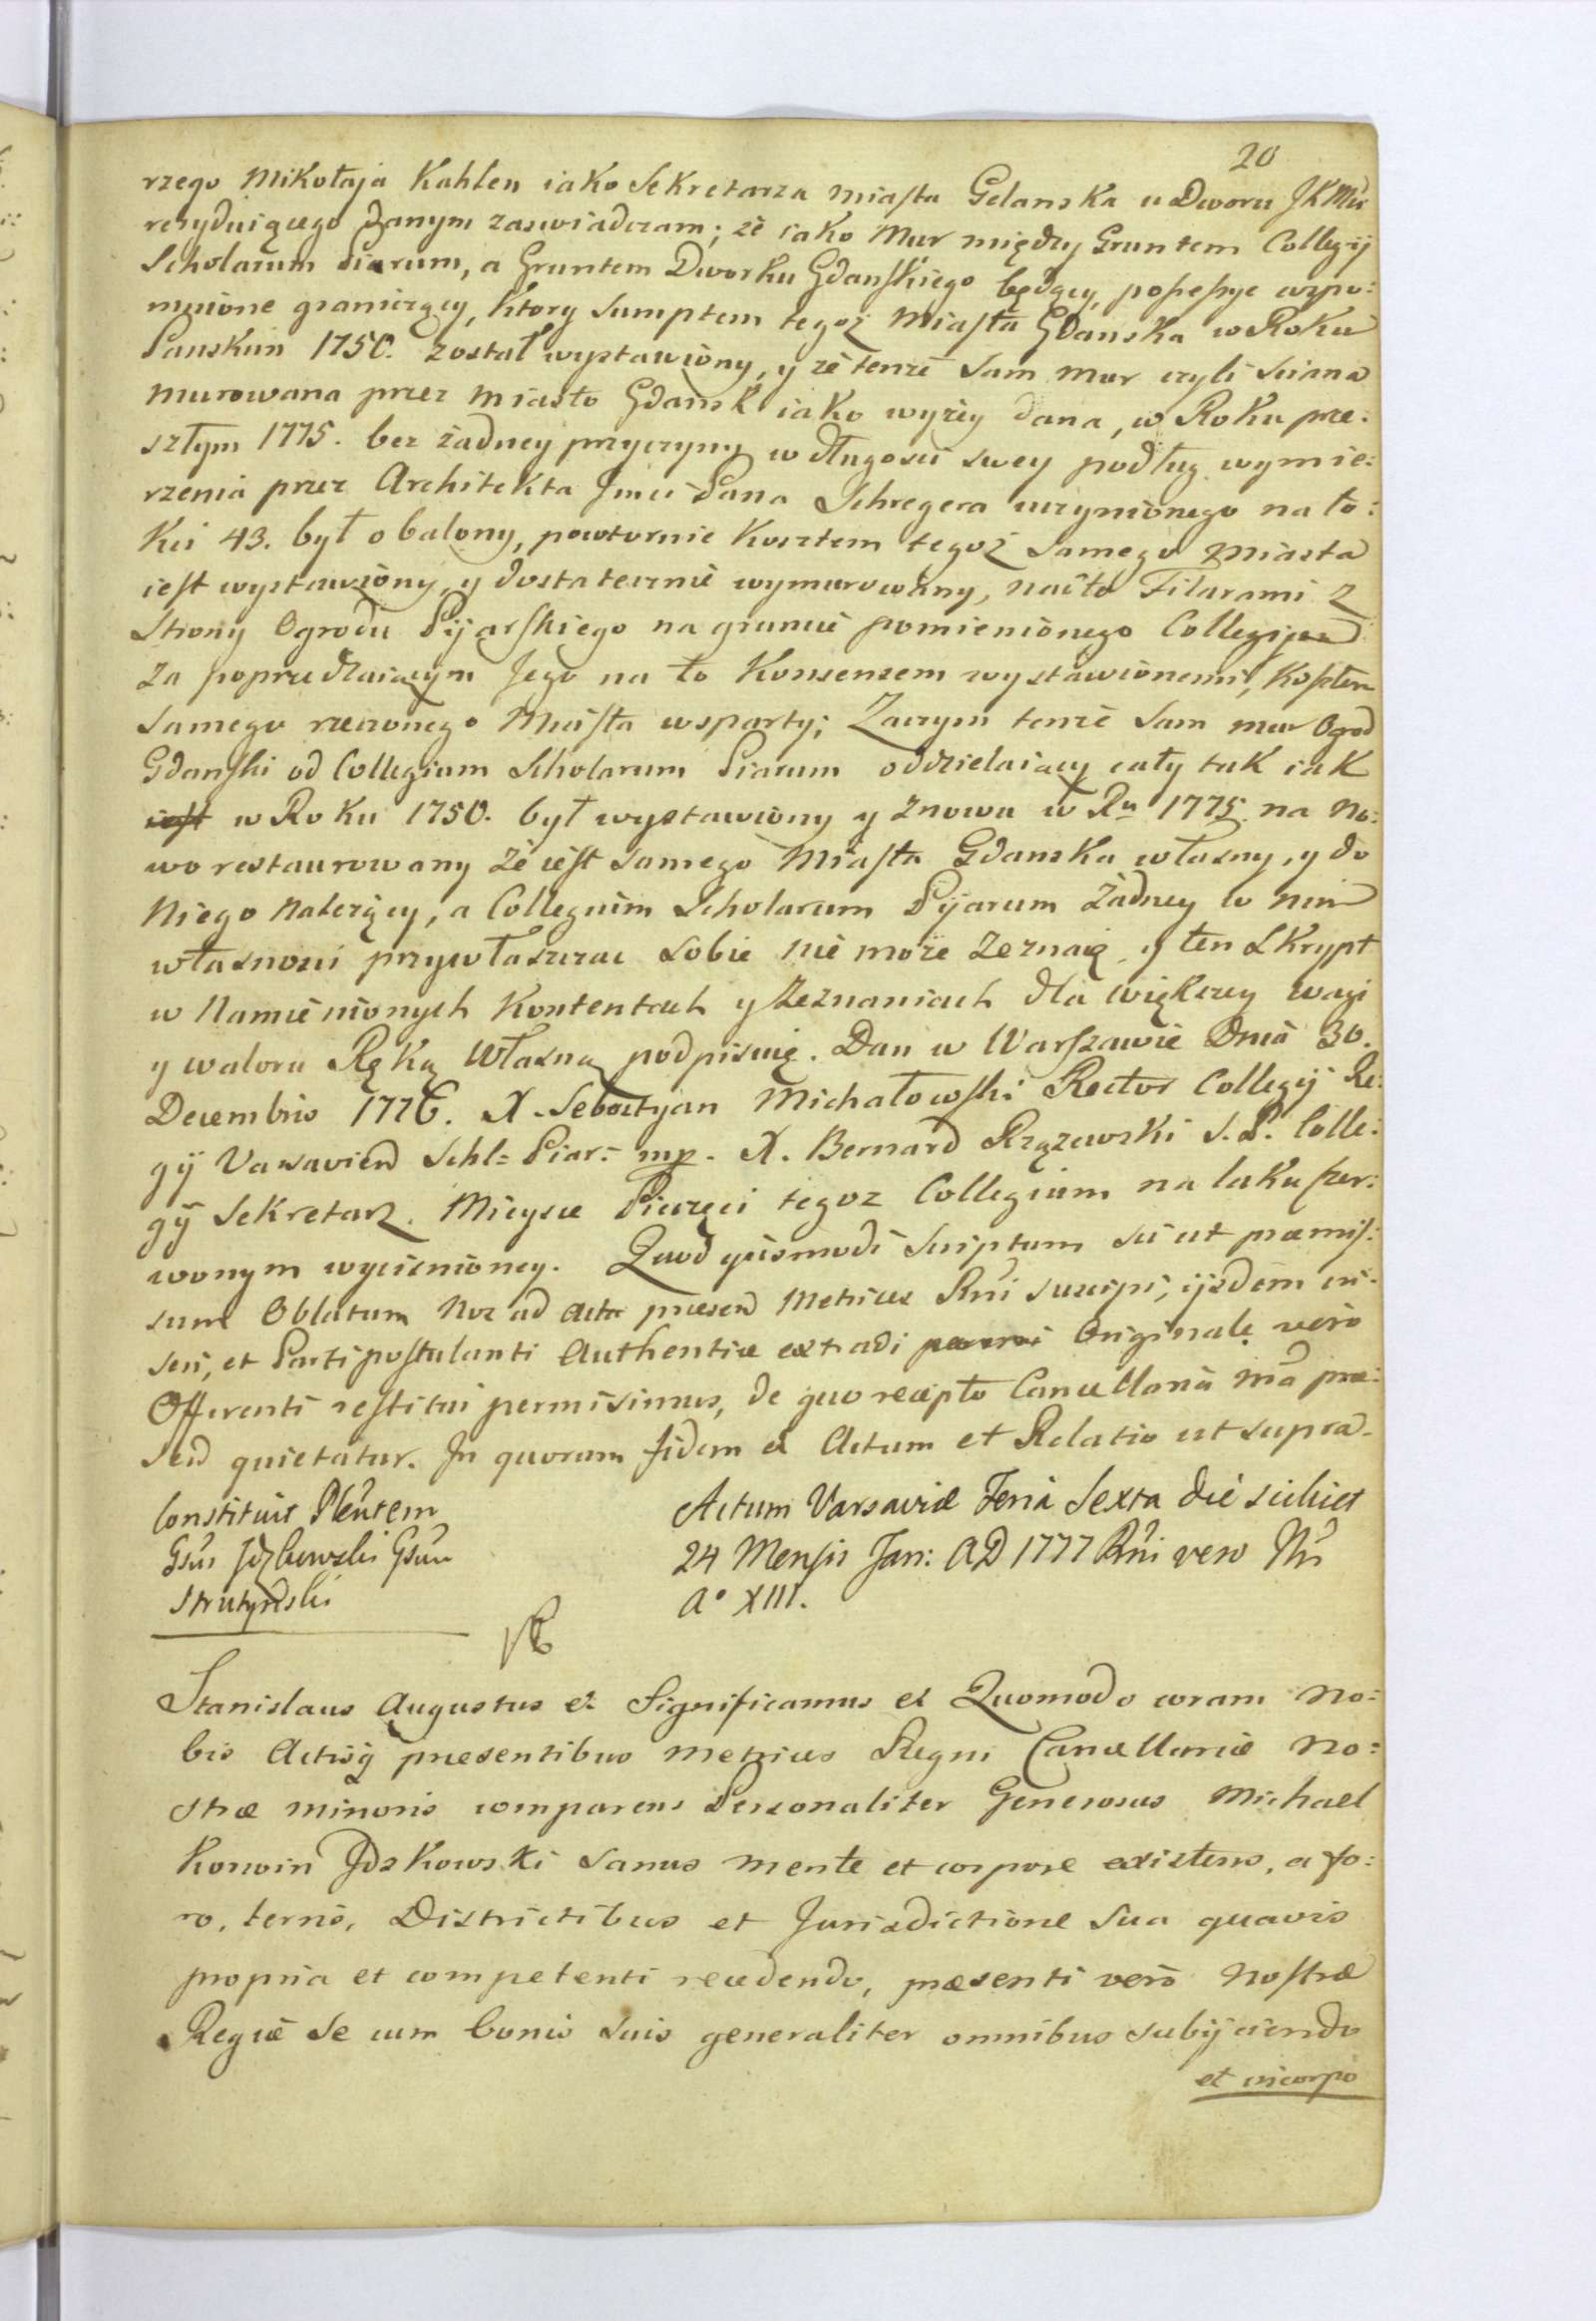 20
rzego Mikołaja Kahlen iako Sekretarza miasta Gdanska u Dworu JKMci
rezyduiącego danym zaswiadczam; że iako Mur między Gruntem Collegij
Scholarum Piarum, a Gruntem Dworku Gdanskiego będący, possessye wspo:
mnione graniczący, ktory sumptem tegoż Miasta Gdanska w Roku
Panskim 1750. został wystawiony, y że tenże sam mur czyli sciana
murowana przez miasto Gdansk iako wyżey dana, w Roku prze:
szłym 1775. bez żadney przyczyny w długosci swey podług wymie:
rzenia przez Architekta Jmci Pana Schregera uczynionego na ło:
kci 43. był obalony, powturnie kosztem tegoż samego Miasta
iest wystawiony, y dostatecznie wymurowany, nadto Filarami z
strony Ogrodu Pijarskiego na gruncie pomienionego Collegium
za poprzedzaiącym Jego na to Konsensem wystawionemi, kosztem
samego rzeczonego Miasta wsparty; Zaczym tenże sam mur Ogrod
Gdanski od Collegium Scholarum Piarum oddzielaiący cały tak iak
iest w Roku 1750. był wystawiony y znowu w Ru 1775. na no:
wo restaurowany że iest samego Miasta Gdanska własny, y do
niego należący, a Collegium Scholarum Pijarum żadney w nim
własnosci przywłaszczac sobie nie może zeznaię, y ten Skrypt
w namienionych Kontentach y Zeznaniach dla większey wagi
y waloru Ręką Własną podpisuię. Dan w Warszawie Dnia 30.
Decembris 1776. X. Sebastyan Michałowski Rector Collegij Re:
gij Varsavien Schl: Piar: mp. X. Bernard Rzązewski S. P. Colle:
gij Sekretarz. Mieysce Pieczęci tegoz Collegium na laku czer:
wonym wycisnioney. Quod ejusmodi Scriptum sic ut praemis:
sum Oblatum Nos ad Acta praesen Metrices Rni suscipi, ijsdem in:
seri, et Parti postulanti Authentice extradi Originale vero
Offerenti restitui permisimus, de quo recepto Cancellaria nra prae:
sen quietatur. In quorum fidem et Actum et Relatio ut supra.
Constituit Plentem
Gsus Jdzkowski Gsum
Strutyński
Actum Varsaviae Feria Sexta die scilicet
24 Mensis Jan: AD 1777 Rni vero Nri
Ao XIII.
Stanislaus Augustus et Significamus et Quomodo coram No:
bis Actisq praesentibus Metrices Regni Cancellariae No:
strae minoris comparens Personaliter Generosus Michael
Korwin Jdzkowski sanus mente et corpore existens, a fo:
ro, terris, Districtibus et Jurisdictione sua quavis
propria et competenti recedendo, praesenti vero Nostrae
Regiae se cum bonis suis generaliter omnibus subijciendo
et incorpo